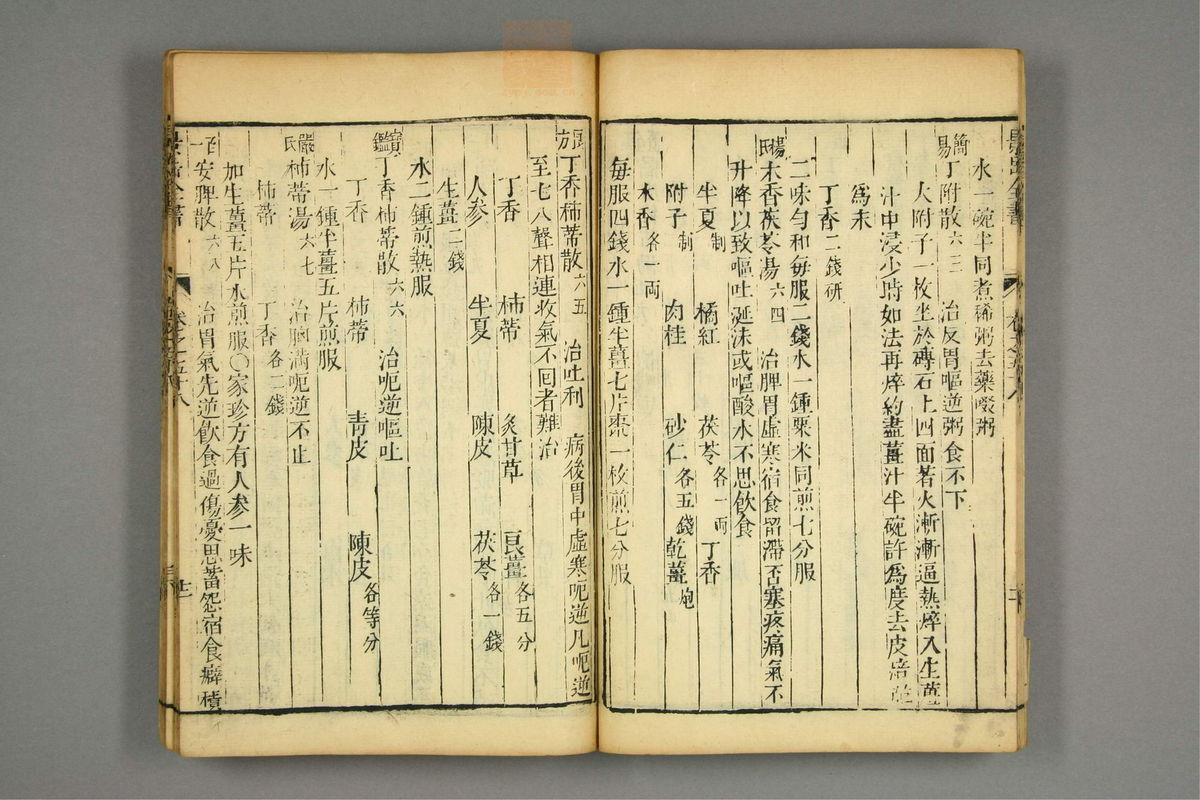 水一碗半同煮稀粥去藥啜粥
簡易丁附散六三 治反胃嘔逆粥食不下
大附子一枚坐於磚石上四面著火漸漸逼熱焠入生薑
汁中浸少時如法再焠約盡薑汁半碗許為度去皮焙
為末
丁香二錢研
二味勻和每服二錢水一鍾粟米同煎七分服
楊氏木香茯苓湯六四 治脾胃虛寒宿食留滯痞塞疼痛氣不
升降以致嘔吐涎沫或嘔酸水不思飲食
半夏制 橘紅 茯苓各一兩 丁香
附子制 肉桂 砂仁各五錢 乾薑炮
木香各一兩
每服四錢水一鍾半薑七片棗一枚煎七分服
景岳全書 卷之五十八
方丁香柿蒂散六五 治吐利 病後胃中虛寒呃逆凡呃逆
至七八聲相連收氣不回者難治
丁香 柿蒂 炙甘草 良薑各五分
人參 半夏 陳皮 茯苓各一錢
生薑二錢
水二鍾煎熱服
寶鑑丁香柿蒂散六六 治呃逆嘔吐
丁香 柿蒂 青皮 陳皮各等分
水一鍾半薑五片煎服
嚴氏柿蒂湯六七 治胸滿呃逆不止
柿蒂 丁香各二錢
加生薑五片水煎服○家珍方有人參一味
百一安脾散六八 治胃氣先逆飲食過傷憂思蓄怨宿食癖積
景岳全書 卷之五十八